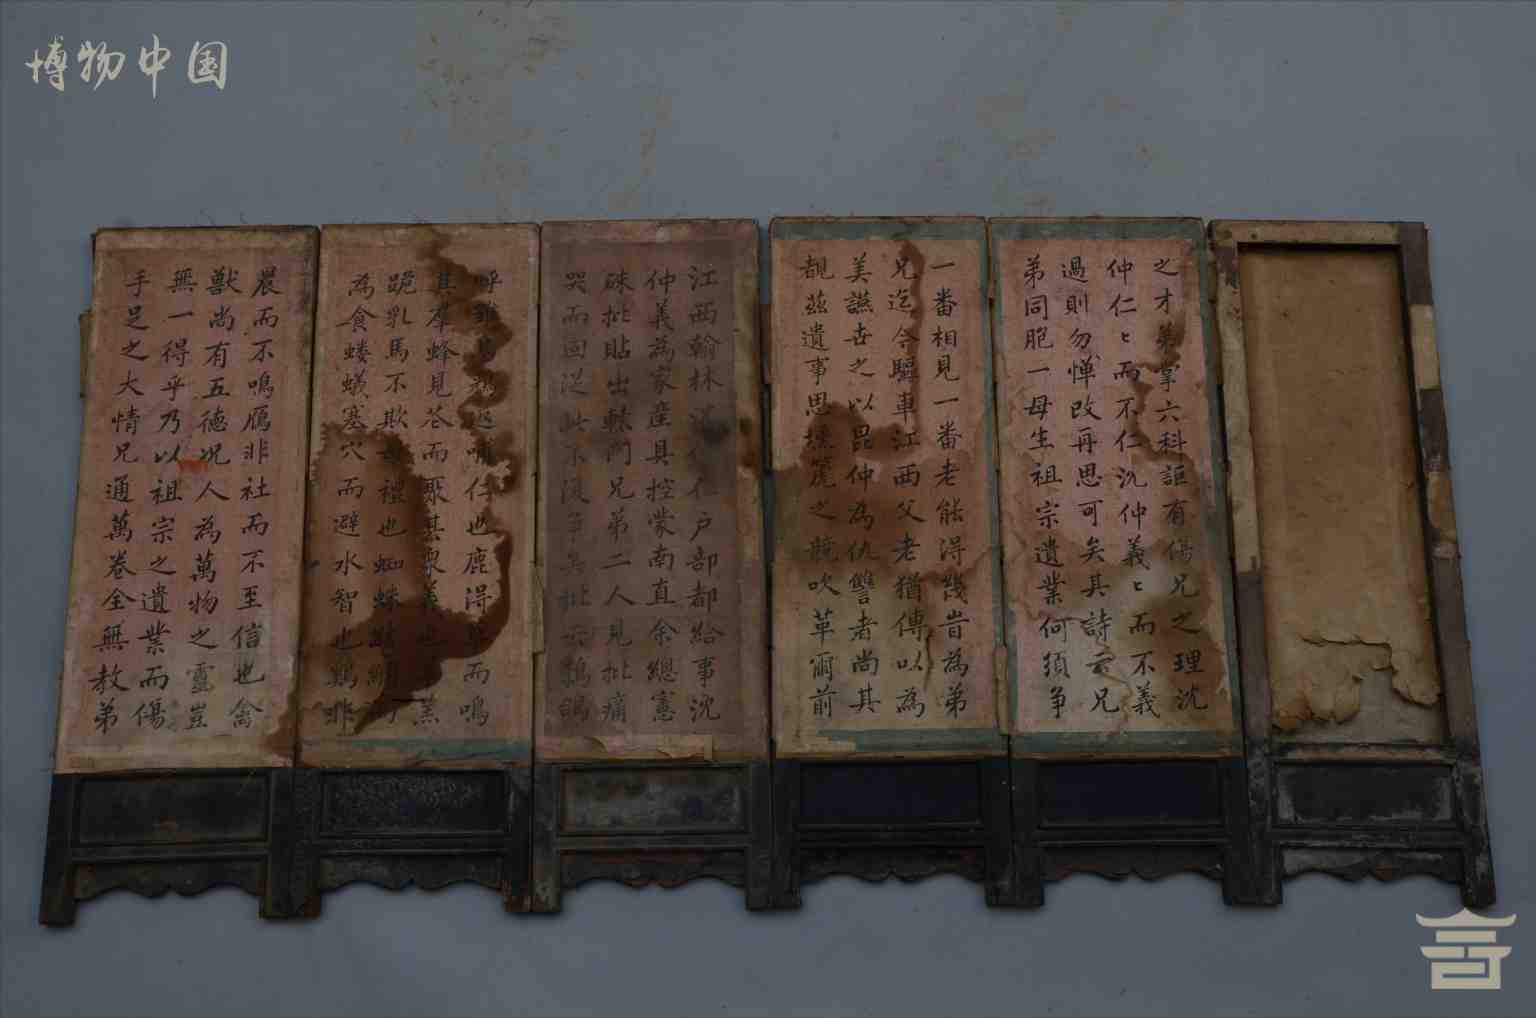 博物中国
之才弟掌六科詎有傷兄之理沈
仲仁〻而不仁沈仲義〻而不義
過則勿憚改再思可矣其詩云兄
弟同胞一母生祖宗遺業何須爭
一番相見一番老能得幾旹為弟
兄迄今驅車江西父老猶傳以為
美讌世之以昆仲為仇讐者尚其
覩茲遺事思壎篪之競吹革爾前
江西翰林沈仲仁户部都給事沈
仲義為家產具控蒙南直余總憲
硃批貼出轅門兄弟二人見批痛
哭而回從此不復爭矣批云鵓鴿
呼雛烏鴉返哺仁也鹿得而鳴
其羣蜂見花而聚其眾義也羔
跪乳馬不欺母禮也蜘蛛網
為食螻蟻塞穴而避水智也鷄非
晨而不鳴鴈非社而不至信也禽
獸尚有五德况人為萬物之靈豈
無一得乎乃以祖宗之遺業而傷
手足之大情兄通萬卷全無教弟